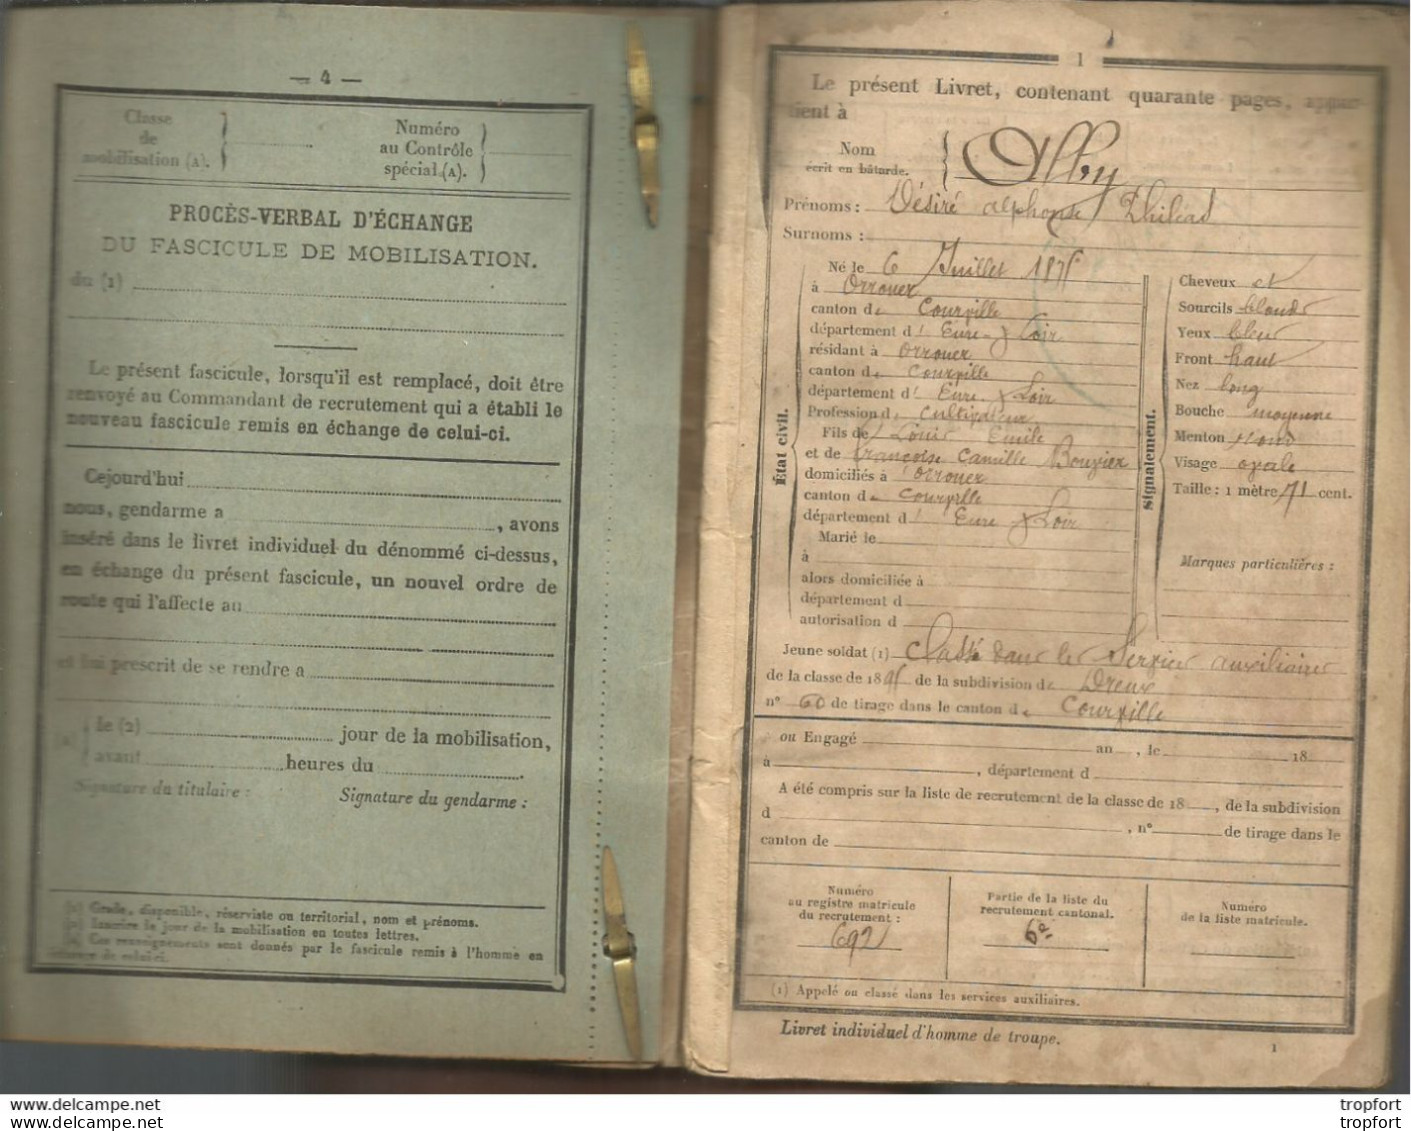 — 4 —
Classe
de
mobilisation (A).
Numéro
au Contrôle
spécial (A).
PROCÈS-VERBAL D'ÉCHANGE
DU FASCICULE DE MOBILISATION.
du (1)
Le présent fascicule, lorsqu'il est remplacé, doit être
renvoyé au Commandant de recrutement qui a établi le
nouveau fascicule remis en échange de celui-ci.
Cejourd'hui
nous, gendarme a , avons
inséré dans le livret individuel du dénommé ci-dessus,
en échange du présent fascicule, un nouvel ordre de
route qui l'affecte au
et lui prescrit de se rendre a
le (2) jour de la mobilisation,
avant heures du
Signature du titulaire :
Signature du gendarme :
(1) Grade, disponible, réserviste ou territorial, nom et prénoms.
(2) Inscrire le jour de la mobilisation en toutes lettres.
(A) Ces renseignements sont donnés par le fascicule remis à l'homme en
échange de celui-ci.
1
Le présent Livret, contenant quarante pages, appar-
tient à
Nom
écrit en bâtarde.
Alby
Prénoms : Désiré alphonse Philéas
Surnoms :
Né le 6 Juillet 187
à Orrouer
canton de Courville
département d' Eure & Loir
résidant à Orrouer
canton de Courville
département d' Eure & Loir
Profession de Cultivateur
Fils de Louis Emile
et de Françoise Camille Bouvier
domiciliés à Orrouer
canton de Courville
département d' Eure & Loir
Marié le
à
alors domiciliée à
département d
autorisation d
État civil.
Signalement.
Cheveux et
Sourcils blonds
Yeux bleu
Front haut
Nez long
Bouche moyenne
Menton rond
Visage ovale
Taille : 1 mètre 71 cent.
Marques particulières :
Jeune soldat (1) Classé dans les Services auxiliaires
de la classe de 189 de la subdivision de Dreux
n° 60 de tirage dans le canton de Courville
ou Engagé an , le 18
à , département d
A été compris sur la liste de recrutement de la classe de 18 , de la subdivision
d , n° de tirage dans le
canton de
Numéro
au registre matricule
du recrutement :
692
Partie de la liste du
recrutement cantonal.
Numéro
de la liste matricule.
(1) Appelé ou classé dans les services auxiliaires.
Livret individuel d'homme de troupe.
1
www.delcampe.net
tropfort
www.delcampe.net
tropfort